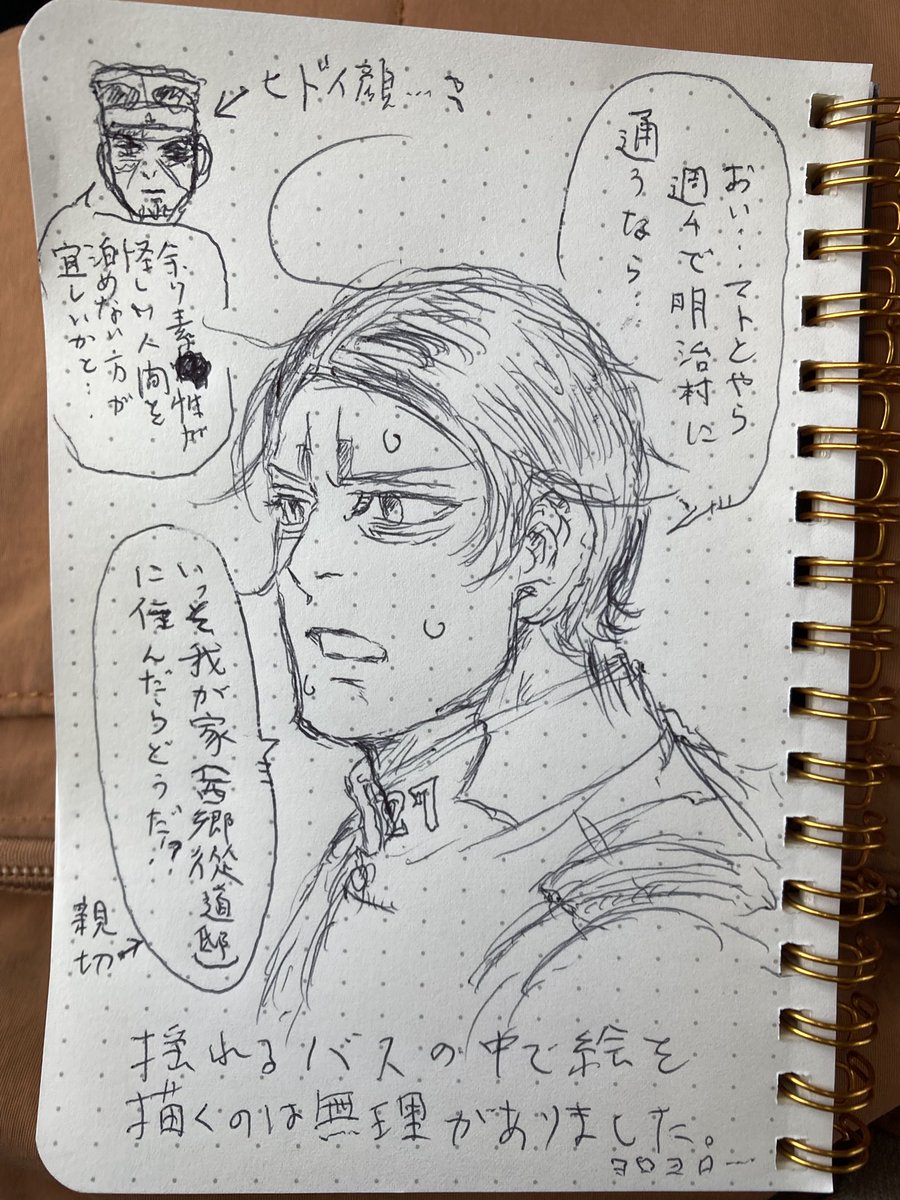 おい…テトとやら
週4で明治村に
通うなら…
ヒドイ顔…
余り素性が
怪しい人間を
泊めない方が
宜しいかと…
いっそ我が家(西郷從道邸)
に住んだらどうだ!?
親
切
揺れるバスの中で絵を
描くのは無理がありました。